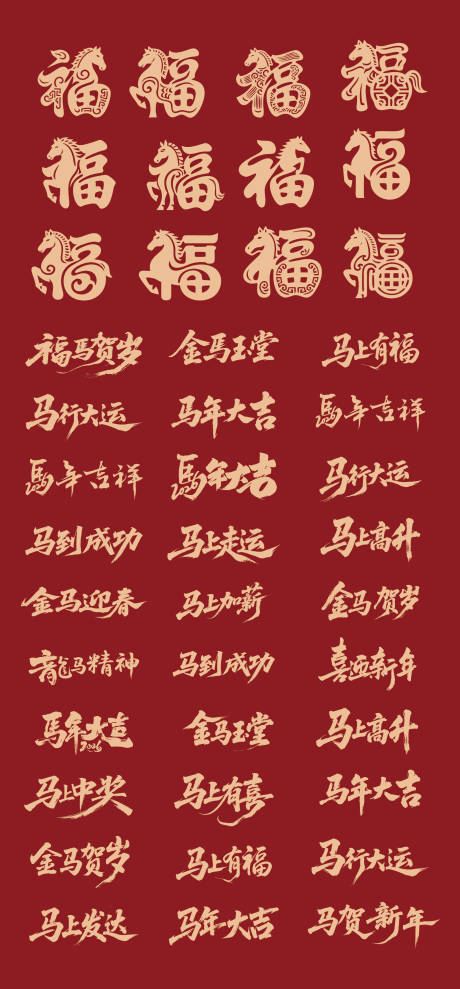 福 福 福 福
福 福 福 福
福 福 福 福
福馬贺岁 金馬玉堂 马上有福
马行大运 马年大吉 馬年吉祥
馬年吉祥 馬年大吉 马行大运
马到成功 马上走运 马上高升
金马迎春 马上加薪 金马贺岁
龍马精神 马到成功 喜迎新年
馬年大吉 2026 金马玉堂 马上高升
马上中奖 马上有喜 马年大吉
金马贺岁 马上有福 马行大运
马上发达 马年大吉 马贺新年